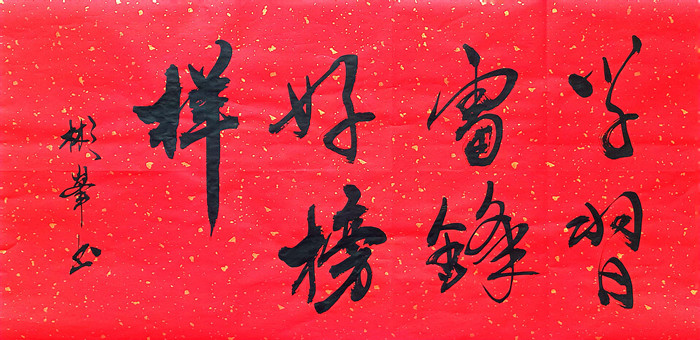 学習
雷鋒
好榜
样
彬華书